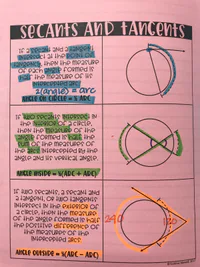 SECANTS AND TANGENTS
If a secant and a tangent
intersect at the point of
tangency, then the measure
of each angle formed is
half the measure of its
intercepted arc.
2(angle) = arc
ANGLE ON CIRCLE = ½ ARC
If two secants intersect in
the interior of a circle,
then the measure of the
angle formed is half
sum of the measures of
the arcs intercepted by the
angle and its vertical angle.
ANGLE INSIDE = ½(ARC + ARC)
If two secants, a secant and
a tangent, or two tangents
intersect in the exterior of
a circle, then the measure
of the angle formed is half
the positive difference of
the measures of the
intercepted arcs.
ANGLE OUTSIDE = ½(ARC - ARC)
240
120